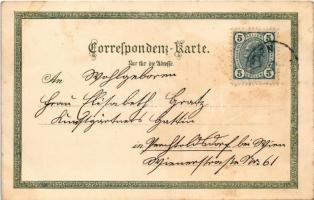 Correspondenz-Karte.
Nur für die Adresse.
An Wohlgeboren
Frau Elisabeth Gratz
Kunstgärtners Gattin
in Perchtoldsdorf bei Wien
Wienerstraße Nr. 61
5 5
5 5